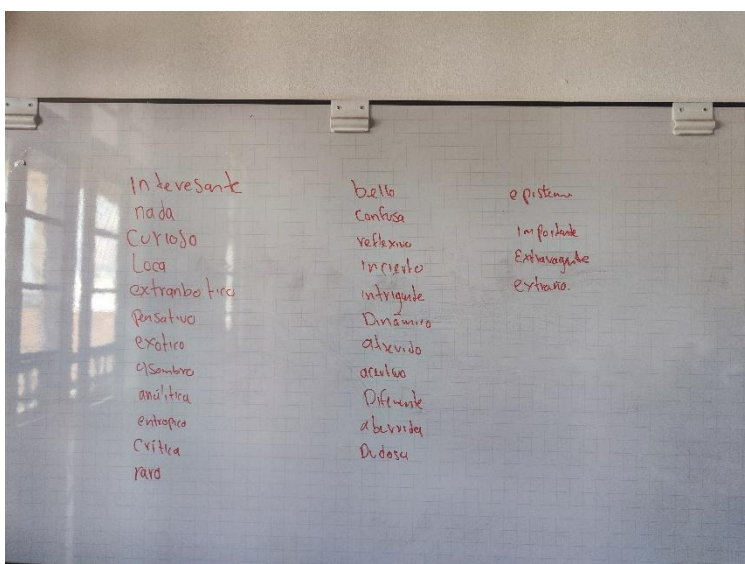 Interesante
nada
Curioso
Loca
extranbotico
pensativo
exotico
asombro
analítica
entropica
Crítica
raro
bello
Confusa
reflexivo
incierto
intrigante
Dinámico
atrevido
asertivo
Diferente
aburrida
Dudosa
epistema
importante
Extravagante
extraño.